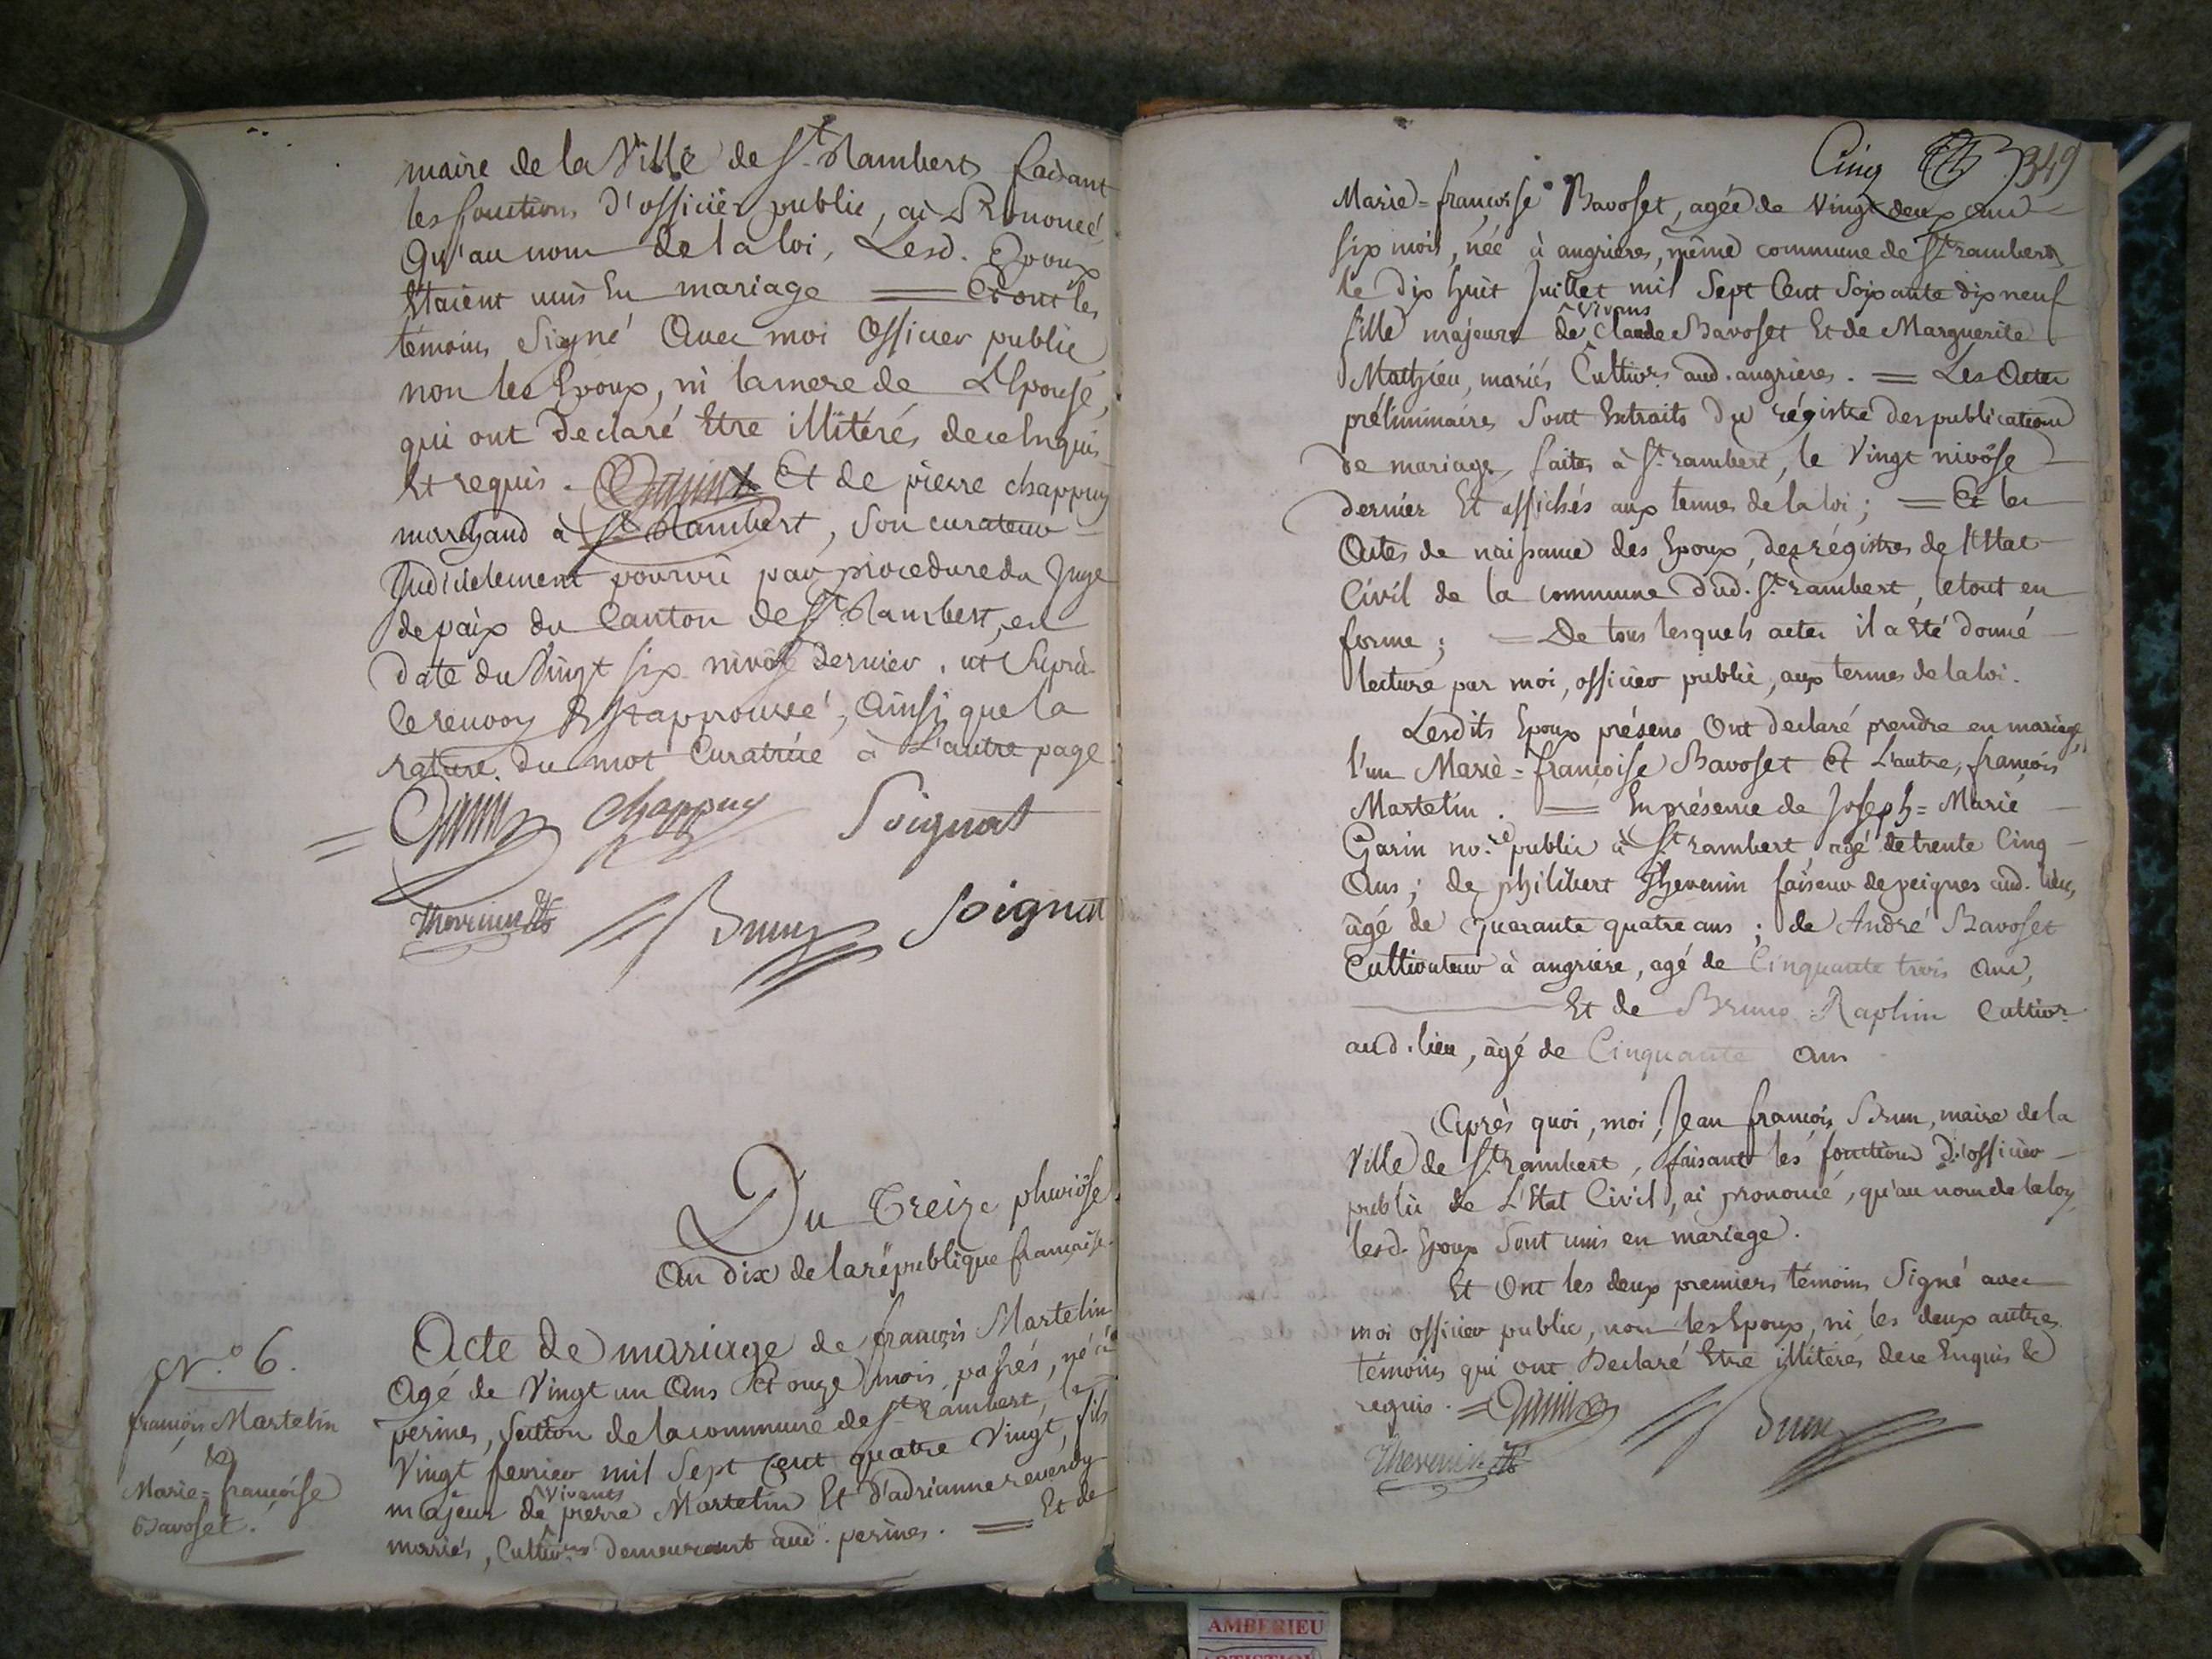 maire de la Ville de St. Rambert faisant
les fonctions d'officier public, ai Prononcé
Qu'au nom de la loi, Lesd. Epoux
Etaient unis En mariage = Et ont les
témoins Signé Avec moi Officier public
non les Epoux, ni la mere de L'Epouse,
qui ont Declaré Etre illitérés de ce Enquis
Et requis. Et de pierre chappuy
marchand à St. Rambert, Son curateur
Judicielement pourvu par procedure du Juge
de paix du Canton de St. Rambert, en
date du Vingt six nivôse dernier. ut Suprà
le renvoy Est approuvé, Ainsi que la
rature du mot Curatrice à L'autre page.
= chappuy Soignat
Thevenin Brun Soignat
Du Treize pluviôse
An dix de la république française.
N.o 6.
françois Martelin
&
Marie=françoise
Bavoset.
Acte de mariage de françois Martelin
Agé de Vingt un Ans Et onze mois passés, né à
perines, Section de la commune de St. Rambert, le
Vingt fevrier mil Sept Cent quatre Vingt, fils
majeur de vivants pierre Martelin Et d'adrianne reverdy
mariés, Cultivrs. Demeurant aud. perines. = Et de
Cinq 349
Marie=françoise Bavoset, agée de Vingt deux ans
six mois, née à angrieres, même commune de St. rambert
le dix huit Juillet mil Sept Cent Soixante dix neuf
fille majeure de vivans Claude Bavoset Et de Marguerite
Mathieu, mariés Cultivrs. aud. angrieres. = Les Actes
préliminaires Sont Extraits du régistre des publications
de mariage, faites à St. rambert, le Vingt nivôse
dernier Et affichés aux termes de la loi; = Et les
Actes de naissance des Epoux, des régistres de l'Etat
Civil de la commune dud. St. rambert, le tout en
forme; = De tous lesquels actes il a Eté donné
lecture par moi, officier public, aux termes de la loi.
Lesdits Epoux présens Ont declaré prendre en mariage,
l'un Marie=françoise Bavoset Et L'autre, françois
Martelin. = En présence de Joseph=Marie
Garin no.re public à St. rambert, agé de trente Cinq
Ans; de philibert Thevenin faiseur de peignes aud. lieu,
âgé de Quarante quatre ans; de André Bavoset
Cultivateur à angriere, agé de Cinquante trois Ans,
Et de Bruno Raphin Cultivr.
aud. lieu, âgé de Cinquante Ans
Après quoi, moi, Jean françois Brun, maire de la
Ville de St. rambert, faisant les fonctions d'officier
public de L'Etat Civil, ai prononcé, qu'au nom de la loy,
lesd. Epoux Sont unis en mariage.
Et Ont les deux premiers témoins Signé avec
moi officier public, non les Epoux, ni les deux autres
témoins qui ont Declaré Etre illitérés de ce Enquis &
requis. =
Thevenin Brun
AMBERIEU